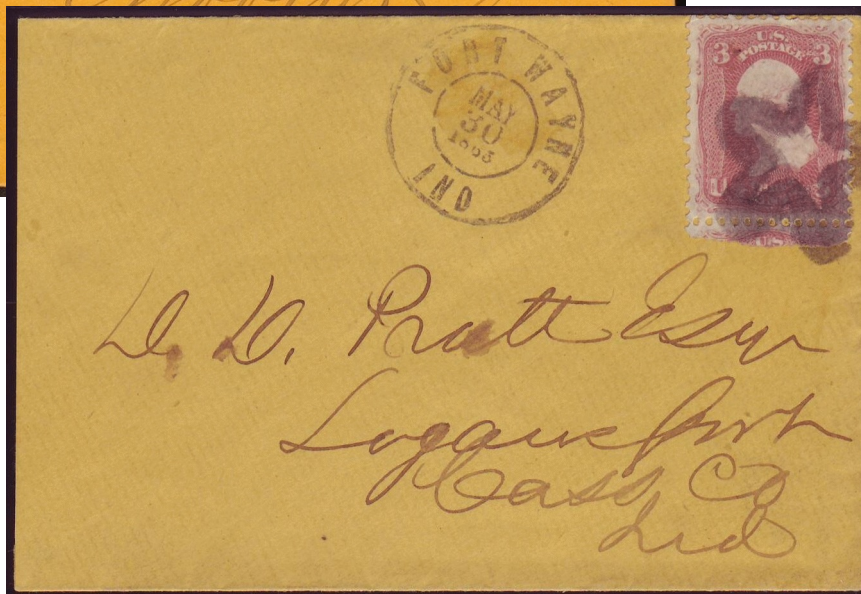 FORT WAYNE
MAY
30
IND
3 U.S. 3
POSTAGE
U
U.S.
D. D. Pratt Esqr
Logansport
Cass Co
Ind